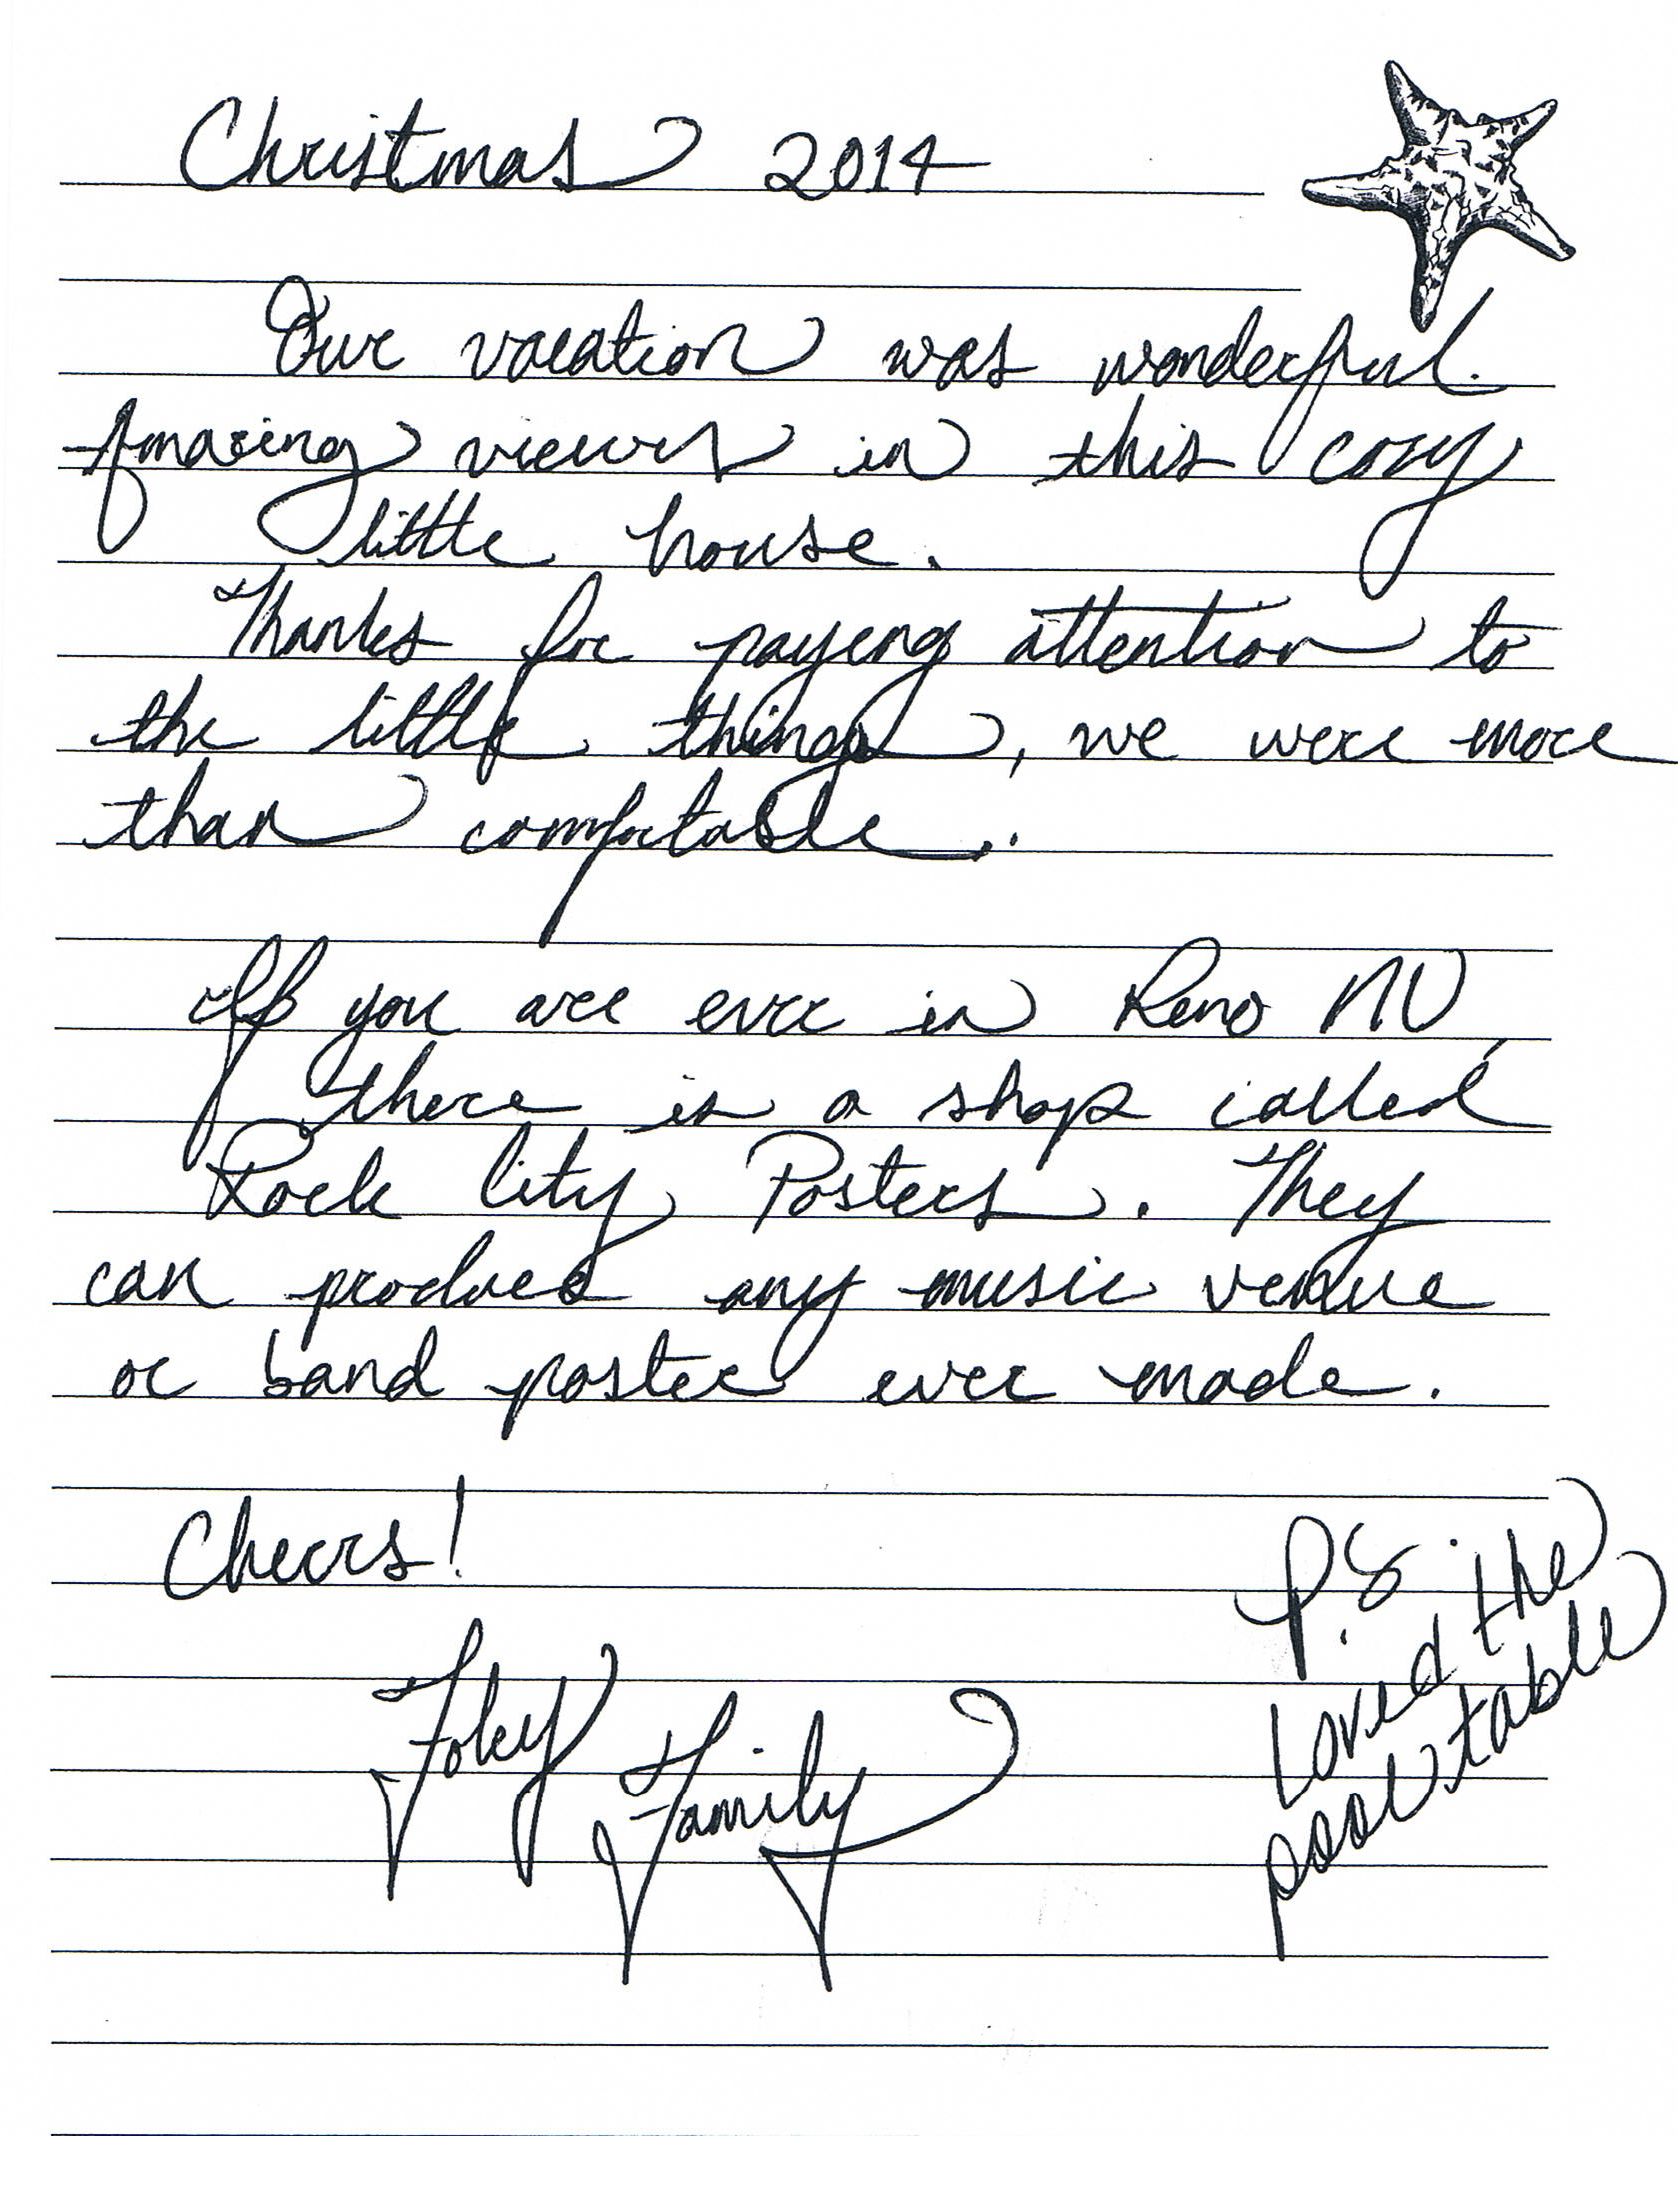 Christmas 2014
Our vacation was wonderful.
Amazing views in this cozy
little house.
Thanks for paying attention to
the little things, we were more
than comfortable..
If you are ever in Reno NV,
there is a shop called
Rock City Posters. They
can produce any music venue
or band poster ever made.
Cheers!
Foley
Family
P.S.
Loved the
pool table